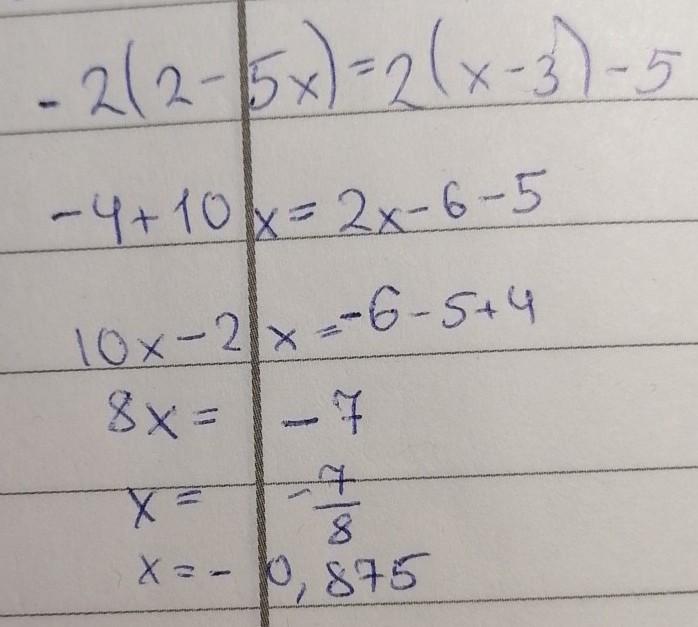 -2(2-5x)=2(x-3)-5
-4+10x=2x-6-5
10x-2x=-6-5+4
8x= -7
x= -7/8
x=-0,875